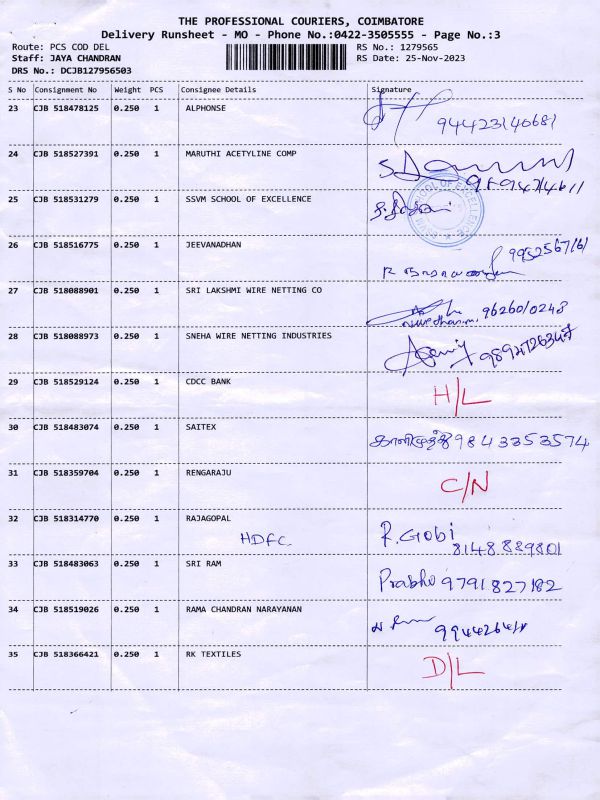 THE PROFESSIONAL COURIERS, COIMBATORE
Delivery Runsheet - MO - Phone No.:0422-3505555 - Page No.:3
Route: PCS COD DEL RS No.: 1279565
Staff: JAYA CHANDRAN RS Date: 25-Nov-2023
DRS No.: DCJB127956503
S No Consignment No Weight PCS Consignee Details Signature
23 CJB 518478125 0.250 1 ALPHONSE 9442314068
24 CJB 518527391 0.250 1 MARUTHI ACETYLINE COMP
25 CJB 518531279 0.250 1 SSVM SCHOOL OF EXCELLENCE
SCHOOL OF EXCELLENCE
26 CJB 518516775 0.250 1 JEEVANADHAN 9952567161
27 CJB 518088901 0.250 1 SRI LAKSHMI WIRE NETTING CO 9626010248
28 CJB 518088973 0.250 1 SNEHA WIRE NETTING INDUSTRIES 9894726347
29 CJB 518529124 0.250 1 CDCC BANK H/L
30 CJB 518483074 0.250 1 SAITEX 9843353574
31 CJB 518359704 0.250 1 RENGARAJU C/N
32 CJB 518314770 0.250 1 RAJAGOPAL R.Gobi
HDFC 8148839801
33 CJB 518483063 0.250 1 SRI RAM Prabhu 9791827182
34 CJB 518519026 0.250 1 RAMA CHANDRAN NARAYANAN
35 CJB 518366421 0.250 1 RK TEXTILES D/L